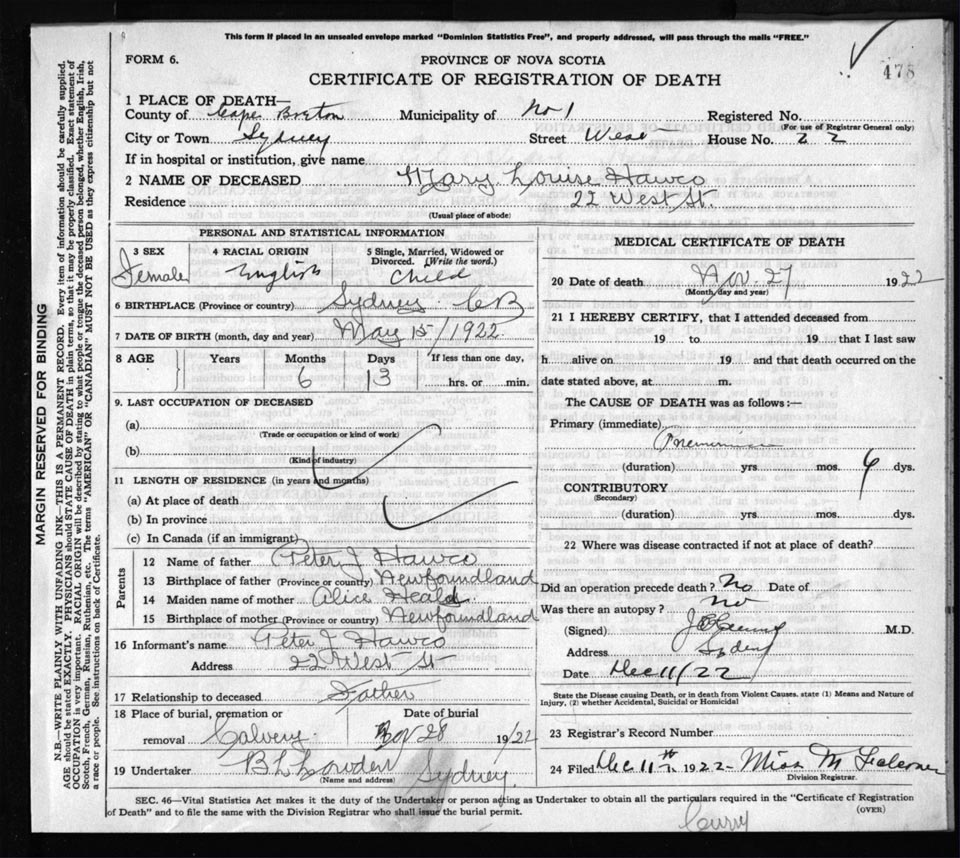 This form if placed in an unsealed envelope marked "Dominion Statistics Free", and properly addressed, will pass through the mails "FREE."
FORM 6.
PROVINCE OF NOVA SCOTIA
478
CERTIFICATE OF REGISTRATION OF DEATH
1 PLACE OF DEATH—
County of Cape Breton Municipality of No 1 Registered No.
(For use of Registrar General only)
City or Town Sydney Street West House No. 22
If in hospital or institution, give name
2 NAME OF DECEASED Mary Louise Hawco
Residence 22 West St.
(Usual place of abode)
PERSONAL AND STATISTICAL INFORMATION
3 SEX Female
4 RACIAL ORIGIN English
5 Single, Married, Widowed or Divorced. (Write the word.) Child
6 BIRTHPLACE (Province or country) Sydney CB
7 DATE OF BIRTH (month, day and year) May 15/1922
8 AGE Years Months Days If less than one day,
6 13 hrs. or min.
9. LAST OCCUPATION OF DECEASED
(a)
(Trade or occupation or kind of work)
(b)
(Kind of industry)
11 LENGTH OF RESIDENCE (in years and months)
(a) At place of death
(b) In province
(c) In Canada (if an immigrant)
Parents
12 Name of father Peter J Hawco
13 Birthplace of father (Province or country) Newfoundland
14 Maiden name of mother Alice Heald
15 Birthplace of mother (Province or country) Newfoundland
16 Informant's name Peter J Hawco
Address 22 West St
17 Relationship to deceased Father
18 Place of burial, cremation or removal Calvery
Date of burial Nov 28 19/22
19 Undertaker B L Lowden Sydney
(Name and address)
MEDICAL CERTIFICATE OF DEATH
20 Date of death Nov. 27 1922
(Month, day and year)
21 I HEREBY CERTIFY, that I attended deceased from
19 to 19 that I last saw
h alive on 19 and that death occurred on the
date stated above, at m.
The CAUSE OF DEATH was as follows:—
Primary (immediate)
(duration) yrs. mos. dys.
CONTRIBUTORY
(Secondary)
(duration) yrs. mos. dys.
22 Where was disease contracted if not at place of death?
Did an operation precede death? No Date of
Was there an autopsy? No
(Signed) M.D.
Address Sydney
Date Dec 11/22
State the Disease causing Death, or in death from Violent Causes, state (1) Means and Nature of
Injury, (2) whether Accidental, Suicidal or Homicidal
23 Registrar's Record Number
24 Filed Dec 11th 1922 Miss M
Division Registrar.
SEC. 46—Vital Statistics Act makes it the duty of the Undertaker or person acting as Undertaker to obtain all the particulars required in the "Certificate of Registration
of Death" and to file the same with the Division Registrar who shall issue the burial permit.
(OVER)
Curry
MARGIN RESERVED FOR BINDING
N.B.—WRITE PLAINLY WITH UNFADING INK—THIS IS A PERMANENT RECORD. Every item of information should be carefully supplied.
AGE should be stated EXACTLY. PHYSICIANS should STATE CAUSE OF DEATH in plain terms, so that it may be properly classified. Exact statement of
OCCUPATION is very important. RACIAL ORIGIN will be described by stating to what people or tongue the deceased person belonged, whether English, Irish,
Scotch, French, German, Russian, Ruthenian, etc. The terms "AMERICAN" or "CANADIAN" MUST NOT BE USED as they express citizenship but not
a race or people. See instructions on back of Certificate.